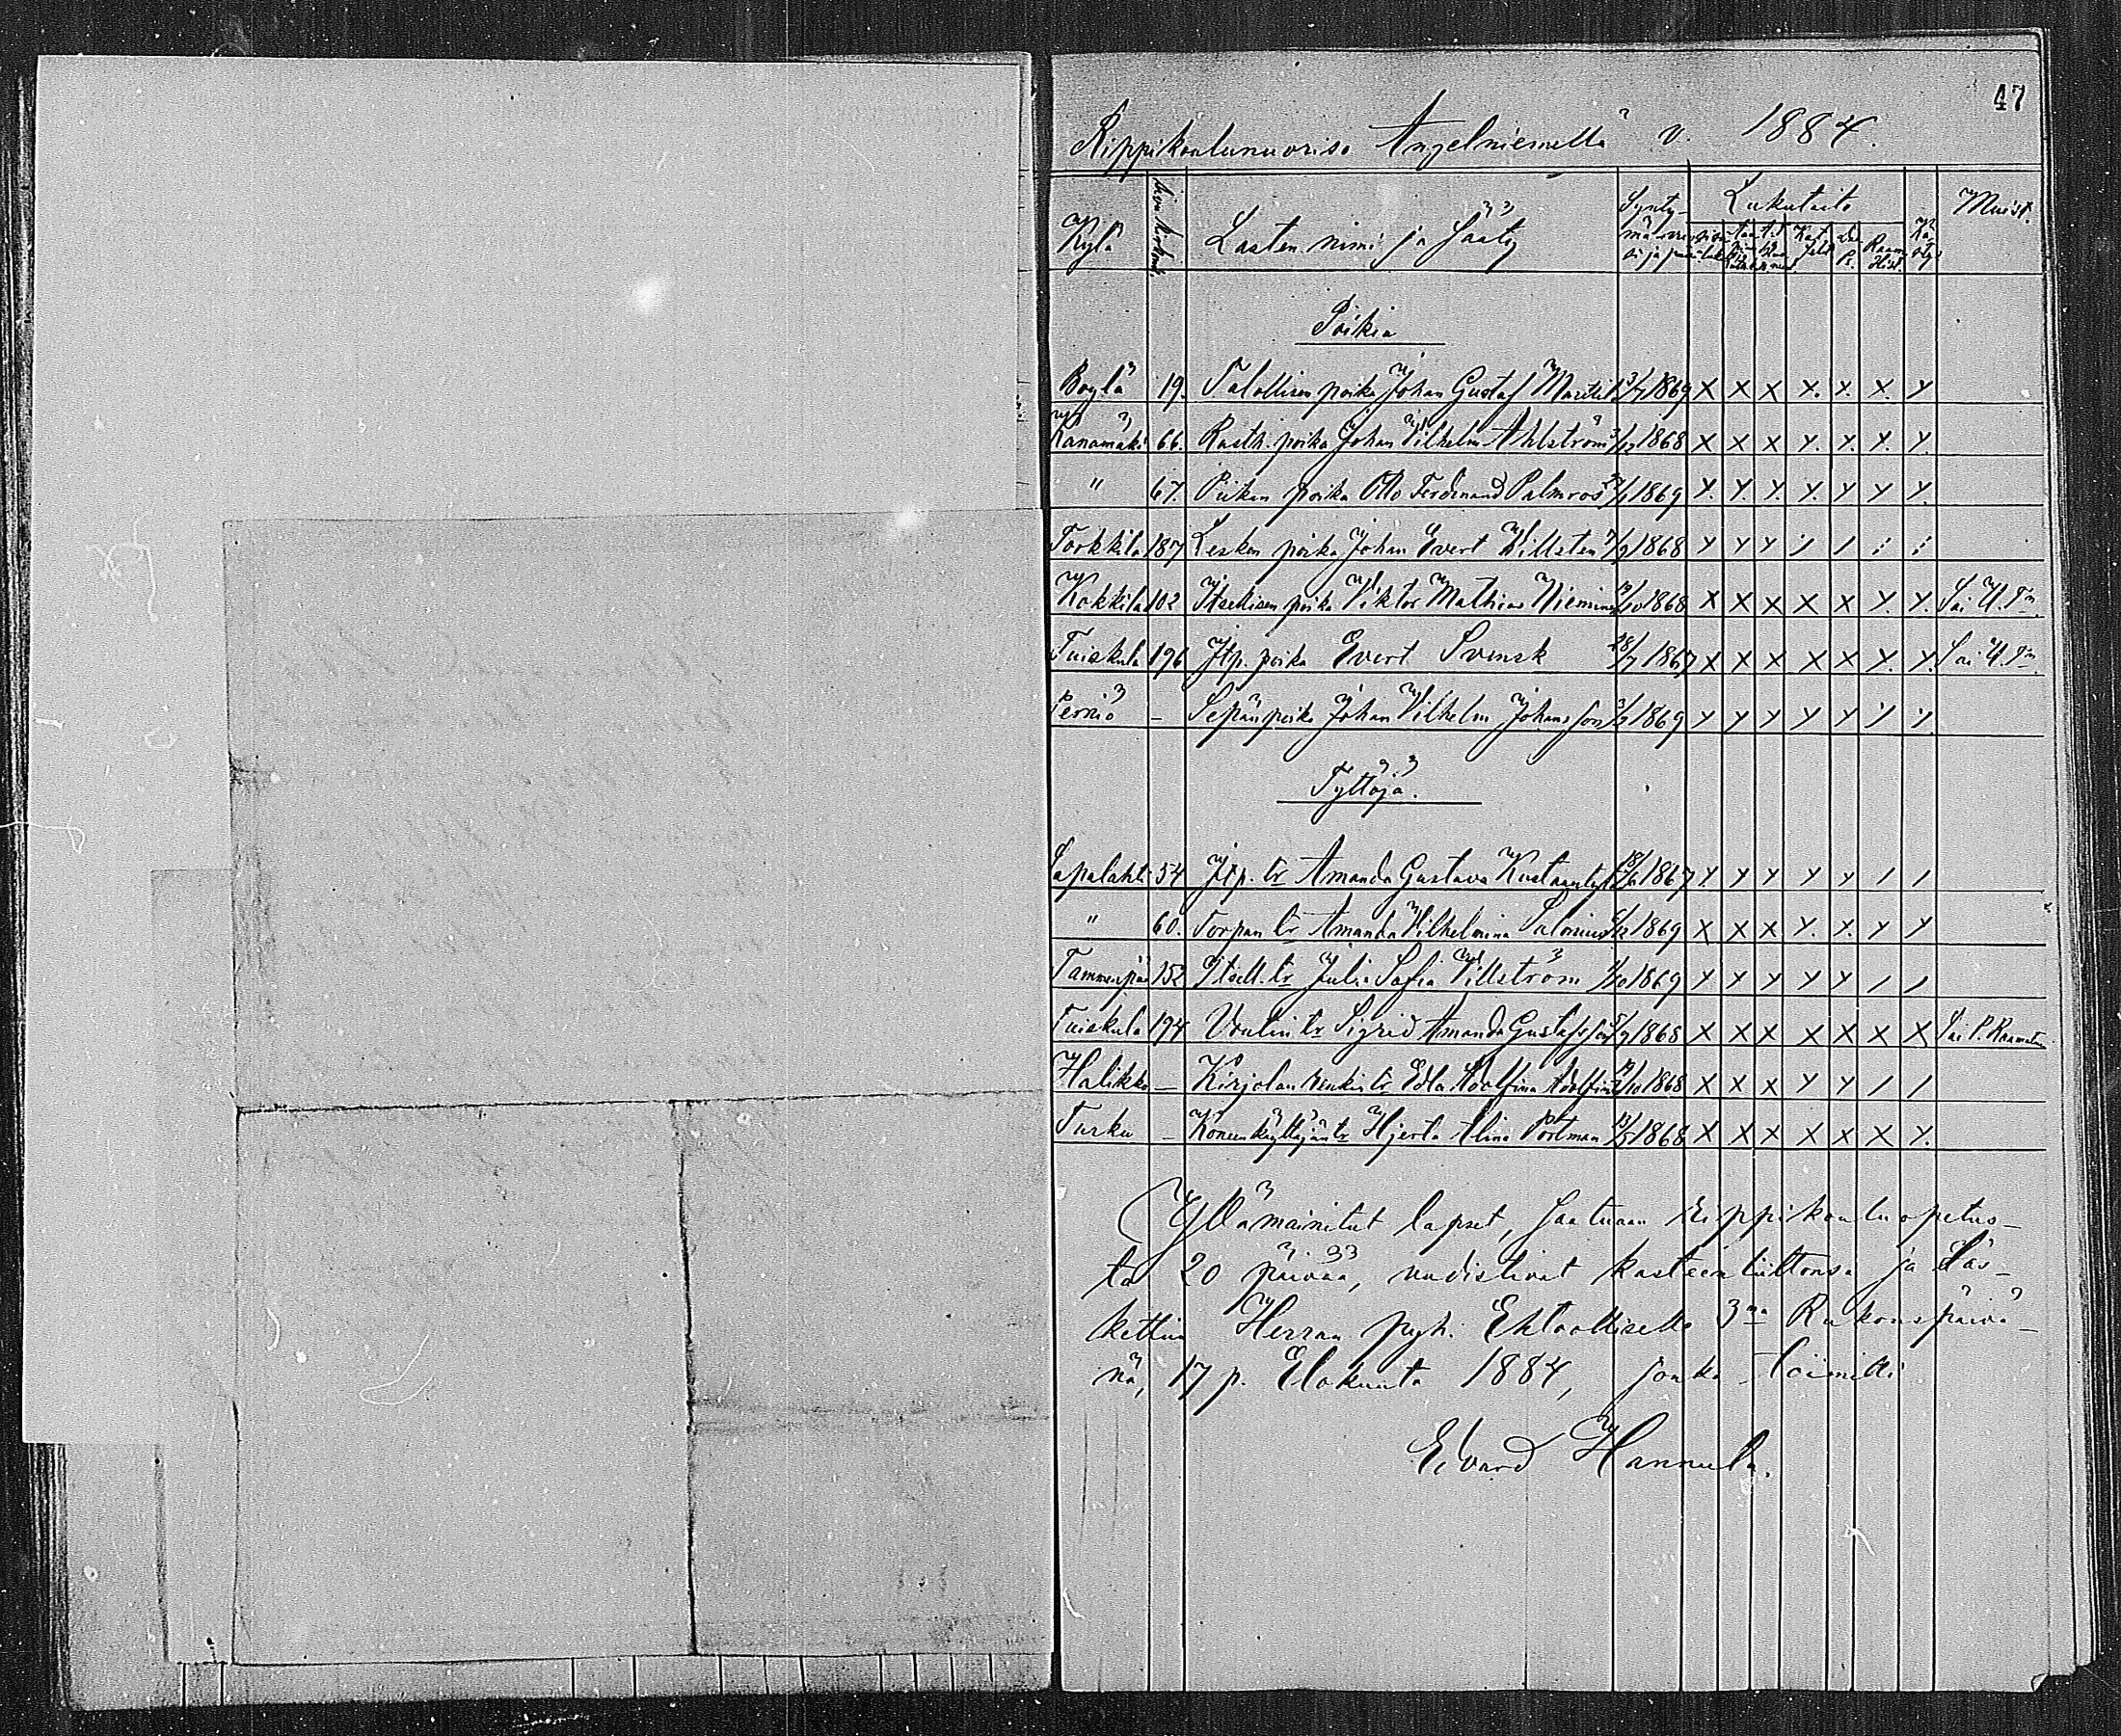 47
Rippikoulunuoriso Angelniemellä v. 1884.
Kylä Lasten nimi ja sääty Synty- Lukutaito Muist.
Poikia
Boylä 19. Talollisen poika Johan Gustaf 3/7 1869 X X X X. X. X. Y
Kanamäki 66. Rusth. poika Johan Vilhelm Ahlström /12 1868 X X X Y. Y. Y. Y.
" 67. Piikan poika Otto Ferdinand Palmros 1869 Y. Y. Y. Y. Y Y Y.
Torkkila 187 Lesken poika Johan Evert Willsten /9 1868 Y Y Y
Kokkila 102 Itsellisen poika Viktor Mathias Nieminen /10 1868 X X X X X Y. Y. Sai U. T:n
Tuiskula 196 Itp. poika Evert Svensk 28/7 1867 X X X X X Y. Y. Sai U. T:n
Perniö — Sepän poika Johan Vilhelm Johansson 3/9 1869 Y Y Y Y Y Y Y
Tyttöjä.
Sapalahti 54 Itp. tr Amanda Gustava 18/6 1867 Y. Y Y Y Y / /
" 60. Torpan tr Amanda Vilhelmina Salonius /12 1869 X X X Y. X. Y Y
Tammenpää 152 Itsell. tr Julia Sofia Villström /10 1869 Y Y Y Y Y / /
Tuiskula 194 Voutin tr Sigrid Amanda Gustafsson /9 1868 X X X X X X X Sai P. Raamatun
Halikko — Kirjolan renkin tr Edla Adolfina /10 1868 X X X Y Y / /
Turku — Koneenkäyttäjän tr Hjerta Alina Portman /5 1868 X X X X X X Y.
Yllämainitut lapset, saatuaan rippikouluopetus-
ta 20 päivää, uudistivat kasteenliittonsa ja las-
kettiin Herran pyh. Ehtoolliselle 3:na Rukouspäivä-
nä, 17 p. Elokuuta 1884, jonka toimitti
Edvard Hannula.